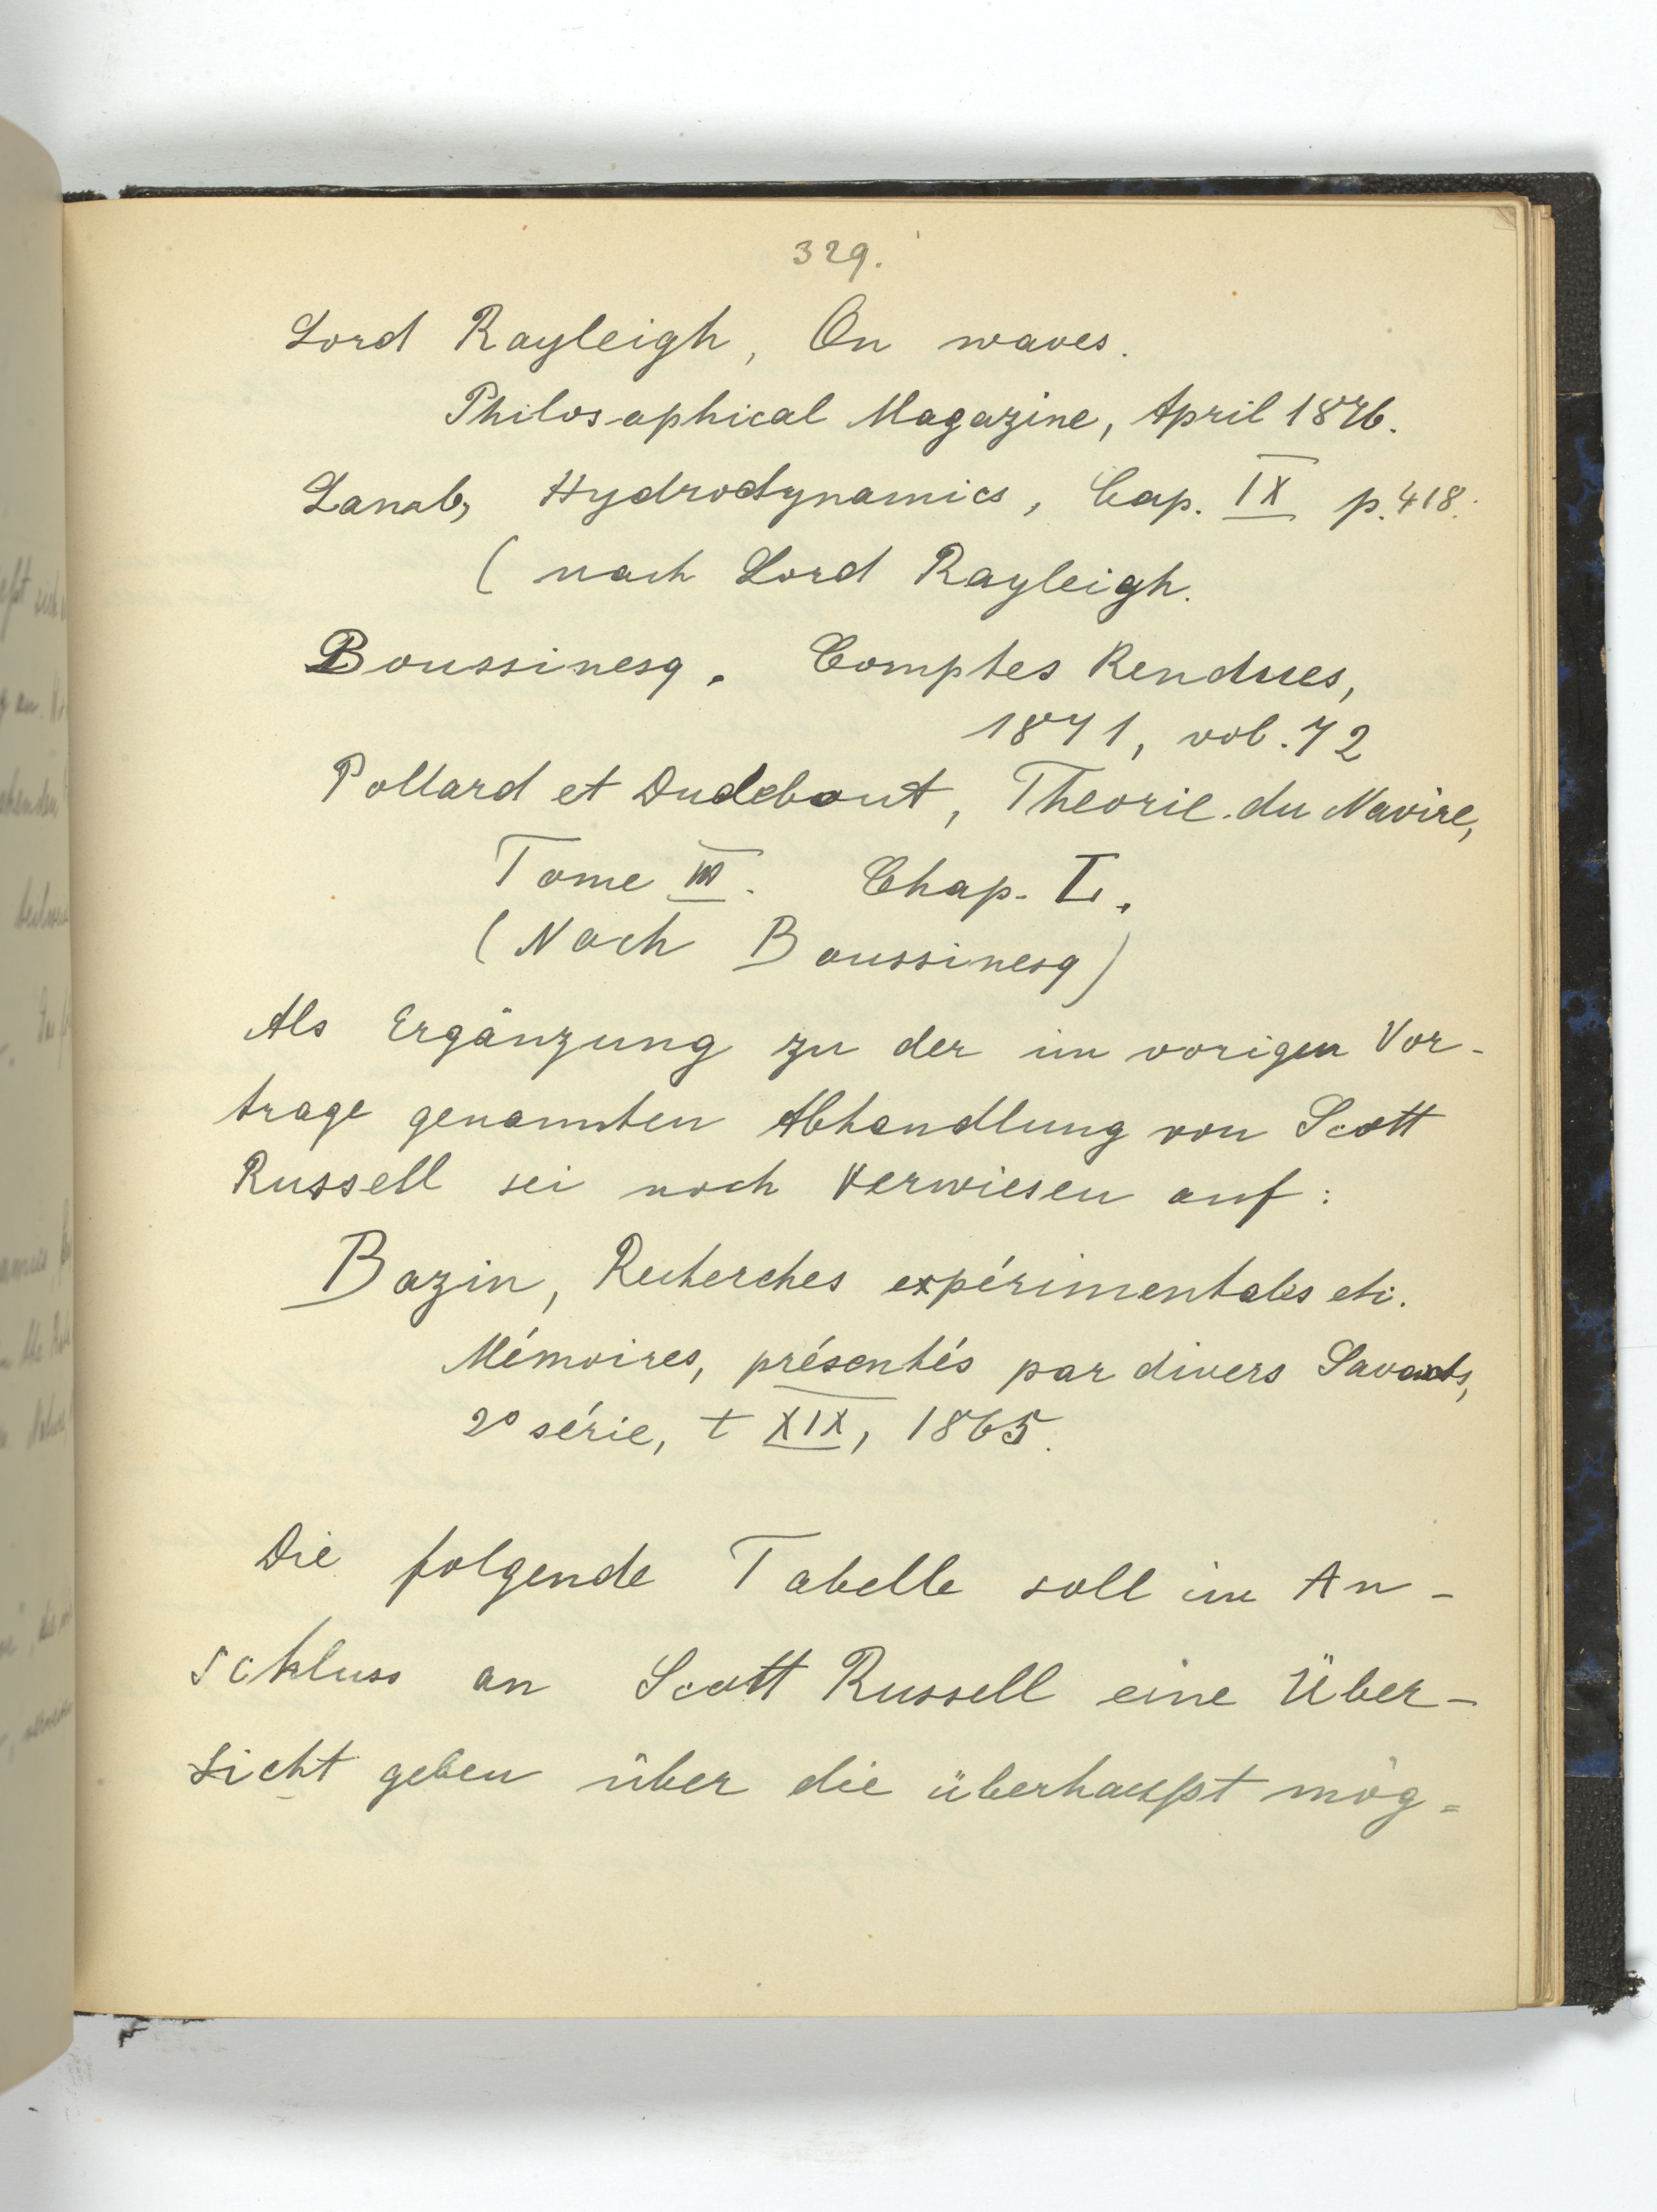 329.
Lord Rayleigh, On waves.
Philosophical Magazine, April 1876.
Lamb, Hydrodynamics, Cap. IX p. 418.
( nach Lord Rayleigh.
Boussinesq. Comptes Rendues,
1871, vol. 72
Pollard et Dudebout, Theorie du Navire,
Tome III. Chap. I.
(Nach Boussinesq)
Als Ergänzung zu der im vorigen Vor-
trage genannten Abhandlung von Scott
Russell sei noch verwiesen auf:
Bazin, Recherches expérimentales etc.
Mémoires, présentés par divers Savants,
2° série, t XIX, 1865.
Die folgende Tabelle soll im An-
schluss an Scott Russell eine Über-
sicht geben über die überhaupt mög=